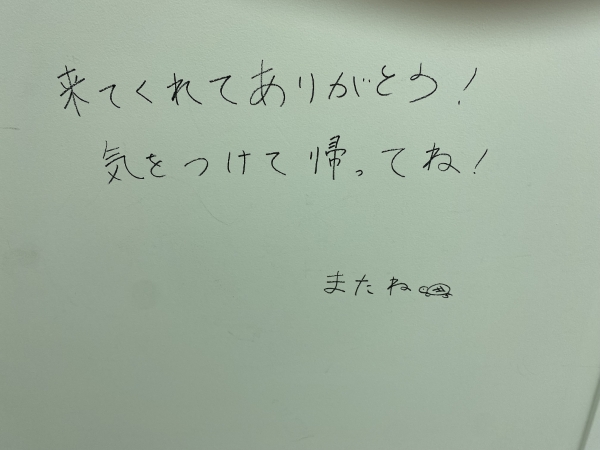 来てくれてありがとう！
気をつけて帰ってね！
またね